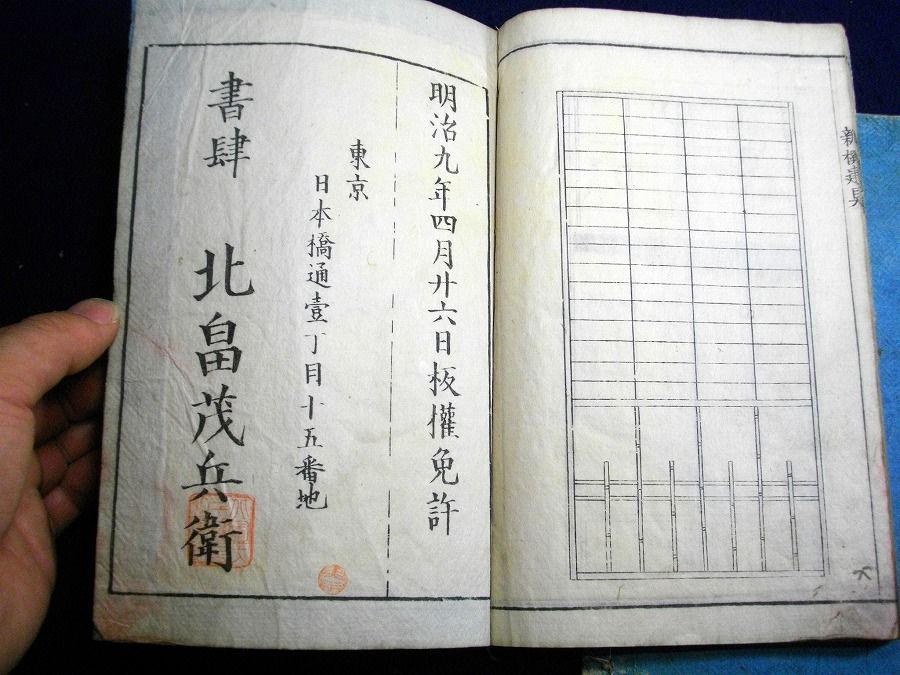 新板建具
明治九年四月廿六日板權免許
東亰
日本橋通壹丁目十五番地
書肆　北畠茂兵衛